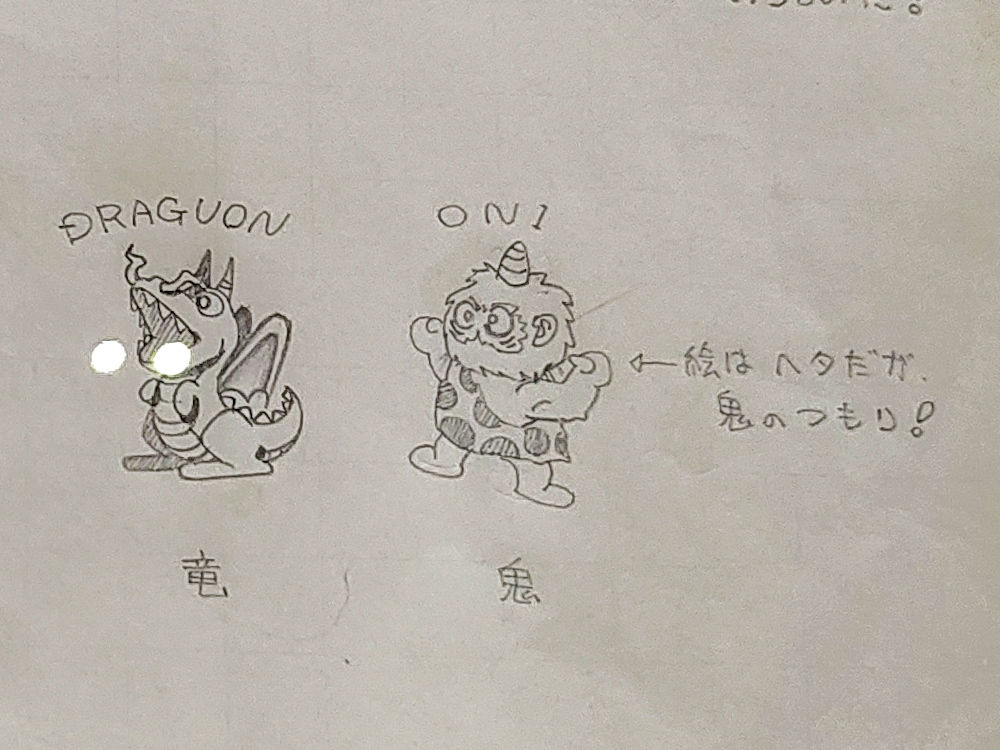 ĐRAGUON
ONI
←絵はヘタだが、
鬼のつもり!
竜
鬼